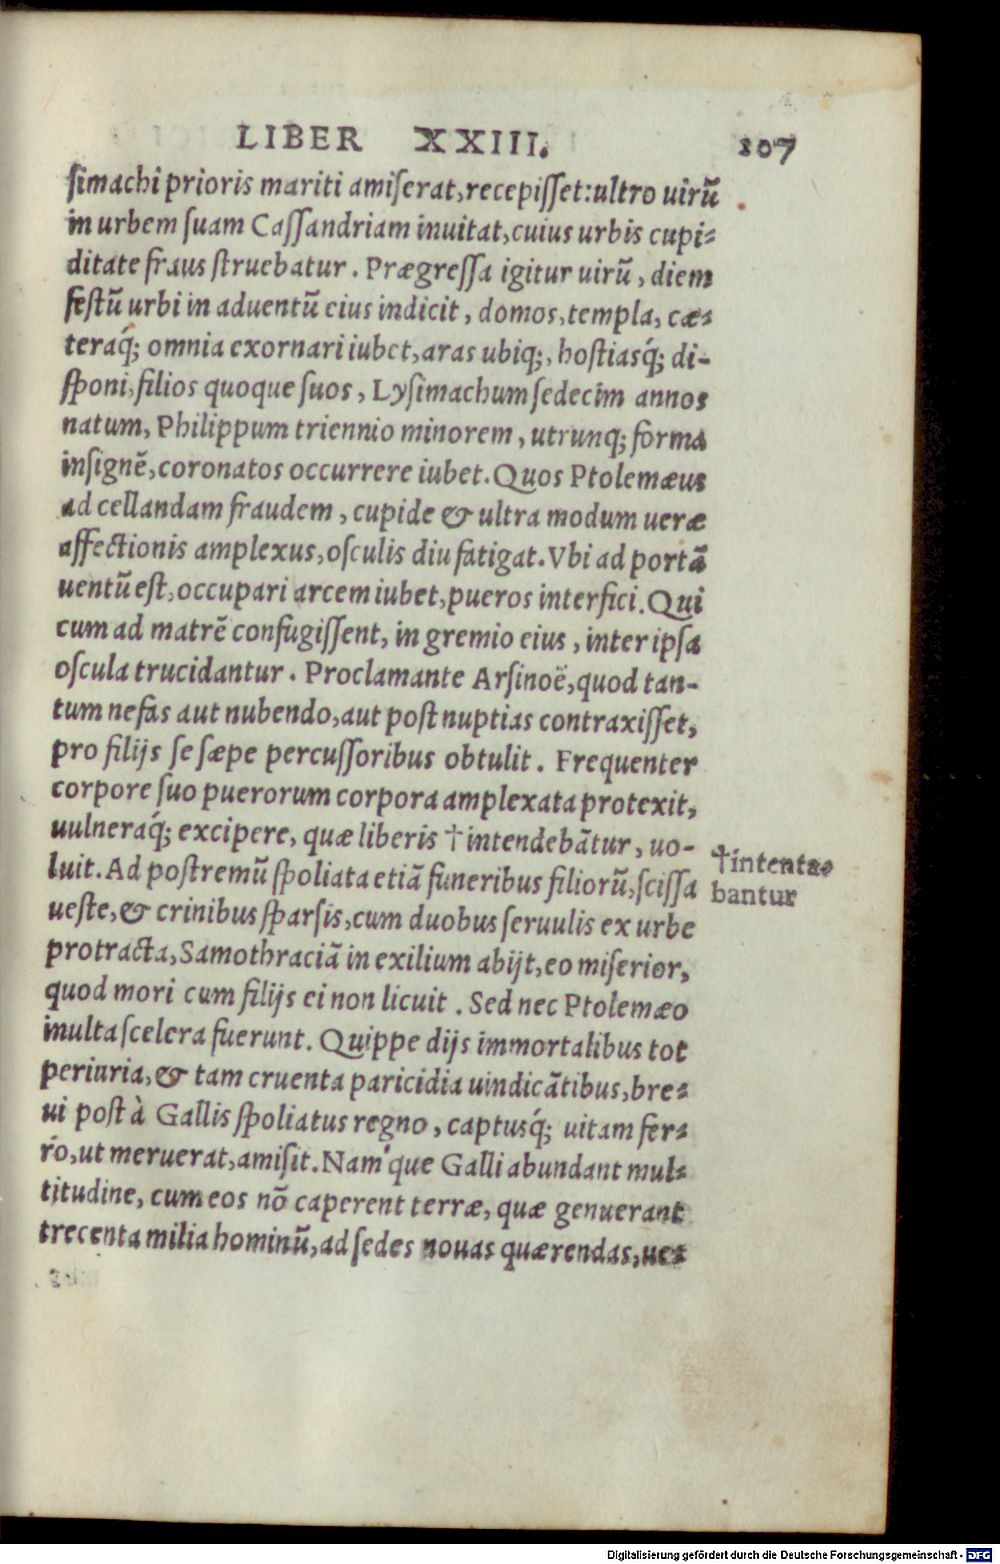 LIBER XXIIII. 107
ſimachi prioris mariti amiſerat,recepiſſet:ultro uirū
in urbem ſuam Caſſandriam inuitat,cuius urbis cupi-
ditate fraus ſtruebatur. Prægreſſa igitur uirū, diem
feſtū urbi in aduentū eius indicit, domos,templa, cæ-
teraq́; omnia exornari iubet,aras ubiq;, hoſtiasq́; di-
ſponi,filios quoque ſuos, Lyſimachum ſedecim annos
natum, Philippum triennio minorem, utrunq; forma
inſignē,coronatos occurrere iubet. Quos Ptolemæus
ad cellandam fraudem, cupide & ultra modum ueræ
affectionis amplexus,oſculis diu fatigat. Vbi ad portā
uentū eſt,occupari arcem iubet,pueros interfici. Qui
cum ad matrē confugiſſent, in gremio eius, inter ipſa
oſcula trucidantur. Proclamante Arſinoë,quod tan-
tum nefas aut nubendo,aut poſt nuptias contraxiſſet,
pro filijs ſe ſæpe percuſſoribus obtulit. Frequenter
corpore ſuo puerorum corpora amplexata protexit,
uulneraq́; excipere, quæ liberis †intendebātur, uo-
luit. Ad poſtremū ſpoliata etiā funeribus filiorū,ſciſſa
ueſte,& crinibus ſparſis,cum duobus ſeruulis ex urbe
protracta,Samothraciā in exilium abijt,eo miſerior,
quod mori cum filijs ei non licuit. Sed nec Ptolemæo
inulta ſcelera fuerunt. Quippe dijs immortalibus tot
periuria,& tam cruenta paricidia uindicātibus,bre-
ui poſt à Gallis ſpoliatus regno, captusq́; uitam fer-
ro,ut meruerat,amiſit. Nam'que Galli abundant mul-
titudine, cum eos nō caperent terræ, quæ genuerant
trecenta milia hominū,ad ſedes nouas quærendas,ue-
†intenta-
bantur
Digitalisierung gefördert durch die Deutsche Forschungsgemeinschaft - DFG